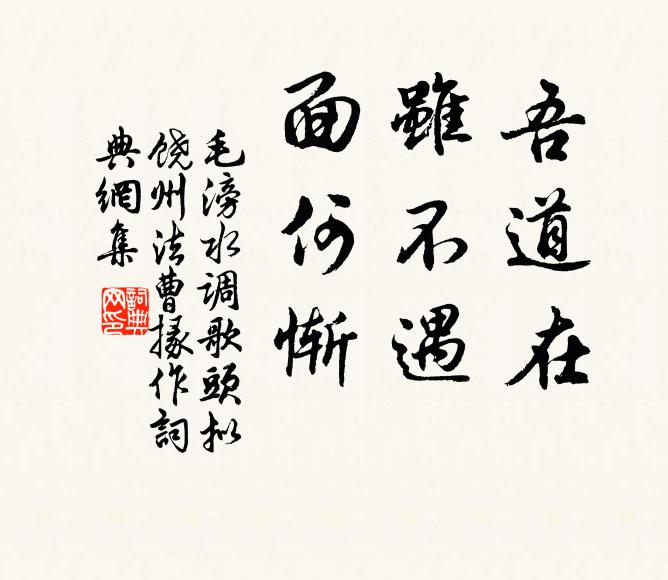 吾道在
雖不遇
面何慚
毛滂水调歌頭拟
饶州法曹掾作詞
典網集
詞典网印